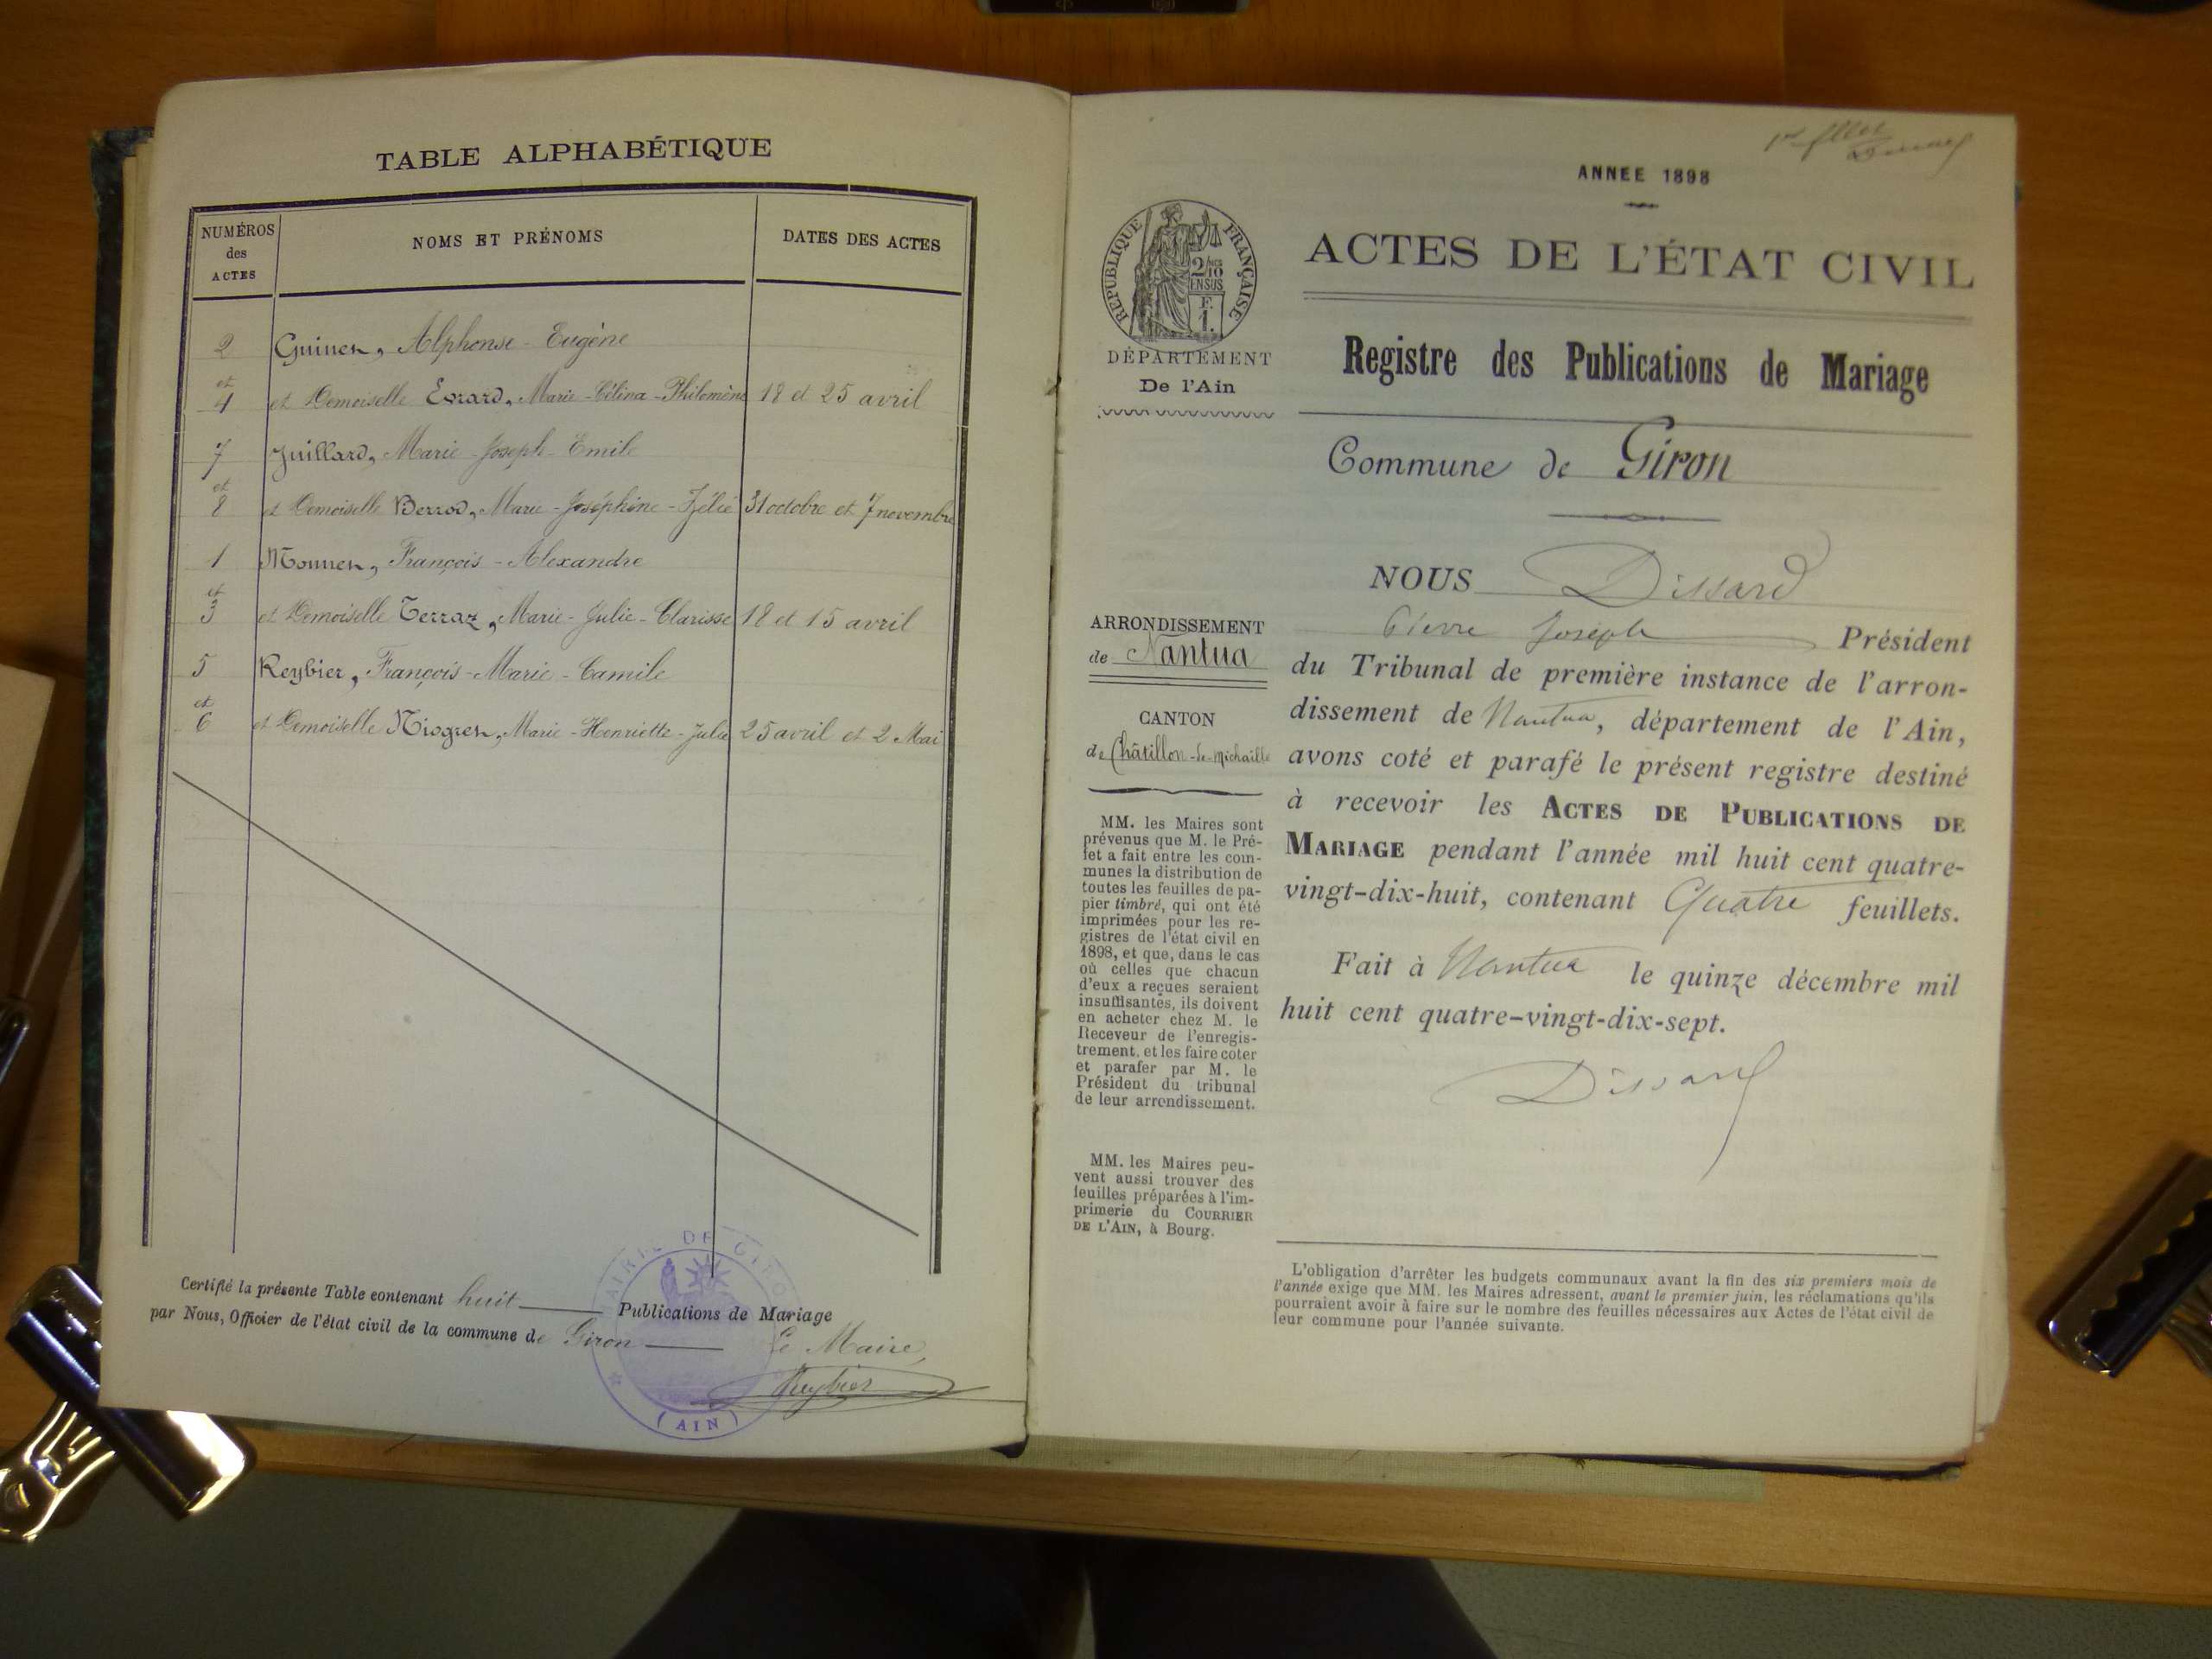 TABLE ALPHABÉTIQUE
NUMÉROS
des
ACTES
NOMS ET PRÉNOMS
DATES DES ACTES
2 Guinet, Alphonse - Eugène
et
4 et Demoiselle Evrard, Marie - Célina - Philomène 18 et 25 avril
7 Juillard, Marie - Joseph - Emile
et
8 et Demoiselle Berrod, Marie - Joséphine - Zélie 31 octobre et 7 novembre
1 Monnet, François - Alexandre
et
3 et Demoiselle Terraz, Marie - Julie - Clarisse 18 et 15 avril
5 Reybier, François - Marie - Camile
et
6 et Demoiselle Niogret, Marie - Henriette - Julie 25 avril et 2 Mai
Certifié la présente Table contenant huit Publications de Mariage
par Nous, Officier de l'état civil de la commune de Giron Le Maire,
Reybier
MAIRIE DE GIRON
(AIN)
ANNÉE 1898
ACTES DE L'ÉTAT CIVIL
RÉPUBLIQUE FRANÇAISE
2/10
EN SUS
F.
1.
DÉPARTEMENT
De l'Ain
Registre des Publications de Mariage
Commune de Giron
ARRONDISSEMENT
de Nantua
CANTON
de Châtillon-de-Michaille
MM. les Maires sont
prévenus que M. le Pré-
fet a fait entre les com-
munes la distribution de
toutes les feuilles de pa-
pier timbré, qui ont été
imprimées pour les re-
gistres de l'état civil en
1898, et que, dans le cas
où celles que chacun
d'eux a reçues seraient
insuffisantes, ils doivent
en acheter chez M. le
Receveur de l'enregis-
trement, et les faire coter
et parafer par M. le
Président du tribunal
de leur arrondissement.
MM. les Maires peu-
vent aussi trouver des
feuilles préparées à l'im-
primerie du COURRIER
DE L'AIN, à Bourg.
NOUS Dissard
Pierre Joseph Président
du Tribunal de première instance de l'arron-
dissement de Nantua, département de l'Ain,
avons coté et parafé le présent registre destiné
à recevoir les ACTES DE PUBLICATIONS DE
MARIAGE pendant l'année mil huit cent quatre-
vingt-dix-huit, contenant Quatre feuillets.
Fait à Nantua le quinze décembre mil
huit cent quatre-vingt-dix-sept.
Dissard
L'obligation d'arrêter les budgets communaux avant la fin des six premiers mois de
l'année exige que MM. les Maires adressent, avant le premier juin, les réclamations qu'ils
pourraient avoir à faire sur le nombre des feuilles nécessaires aux Actes de l'état civil de
leur commune pour l'année suivante.